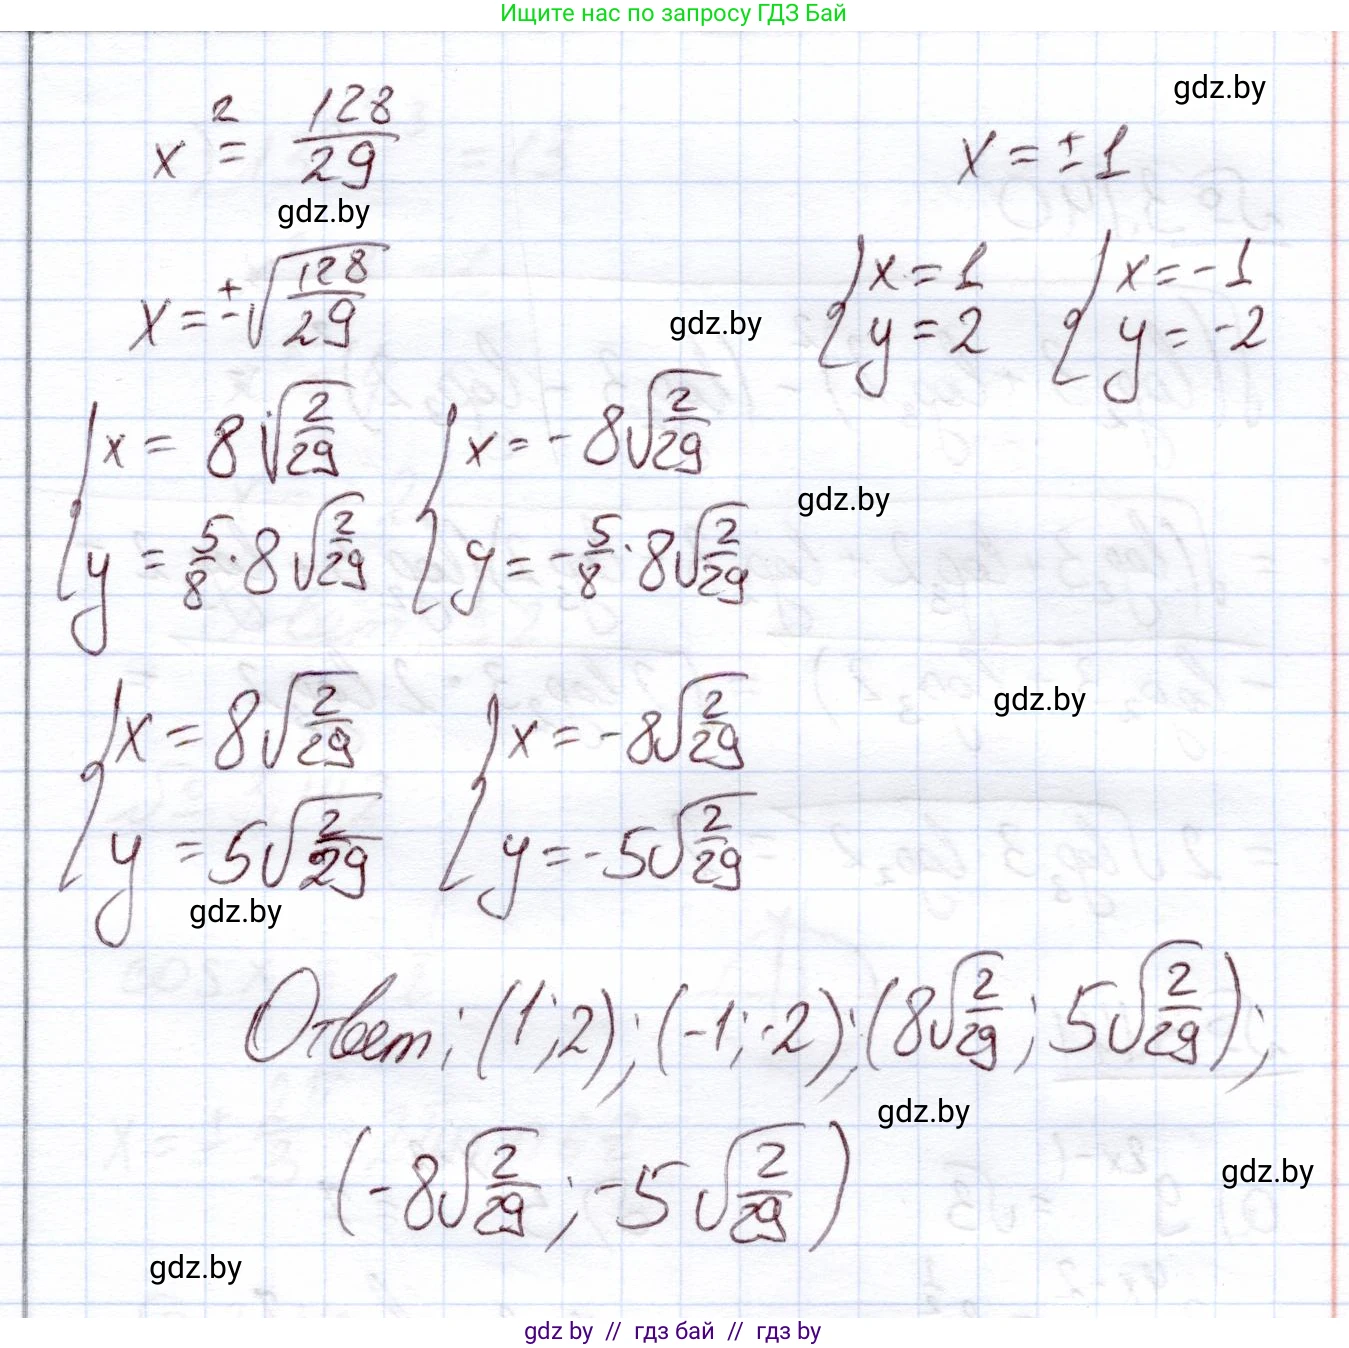 Ищите нас по запросу ГДЗ Бай
gdz.by
x² = 128/29
x = ±1
gdz.by
x = ±√(128/29)
{x = 1
y = 2
{x = -1
y = -2
gdz.by
{x = 8√(2/29)
y = 5/8 · 8√(2/29)
{x = -8√(2/29)
y = -5/8 · 8√(2/29)
gdz.by
{x = 8√(2/29)
y = 5√(2/29)
{x = -8√(2/29)
y = -5√(2/29)
gdz.by
gdz.by
Ответ; (1; 2); (-1; -2); (8√(2/29); 5√(2/29));
gdz.by
(-8√(2/29); -5√(2/29))
gdz.by
gdz.by
gdz by // гдз бай // гдз by